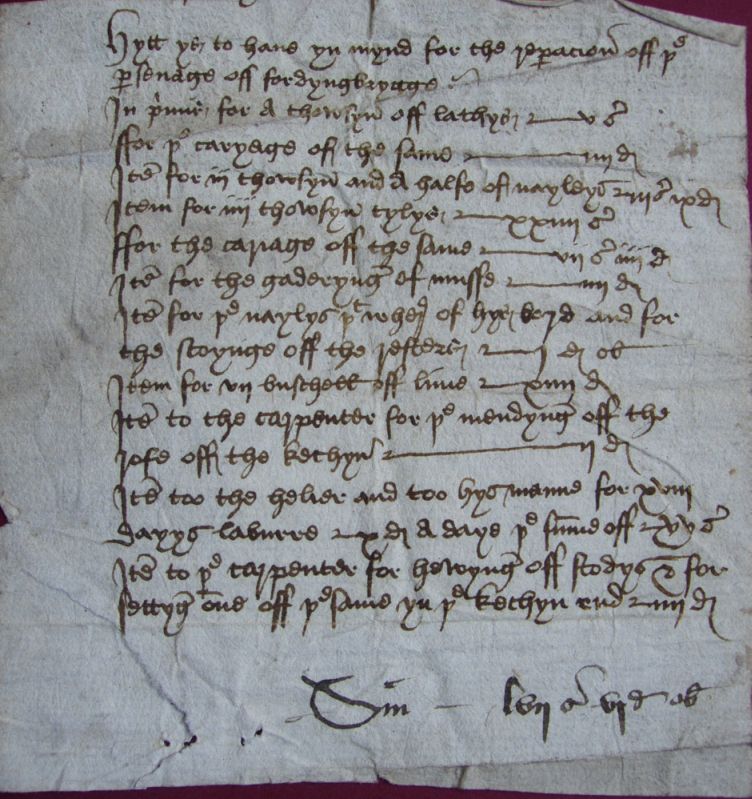 Hytt ys to haue yn mynd for the reparacion off þe
personage off fordyngbrygge
In primis for A thowsyn off lathys v s
ffor þe caryage off the same iiii d
Ite for ii thowsyn and A halfe of nayleys iii s ix d
Item for iiii thowsyn tylys xxiiii s
ffor the cariage off the same vii s iiii d
Ite for the gaderyng of musse iiii d
Ite for þe naylys of bord and for
the off the i d ob
Item for vii buschell off lime xiiii d
Ite to the carpenter for þe mendyng off the
rofe off the kechyn ii d
Ite too the helier and too hys manne for xviii
dayys laburre x d A daye þe sume off xv s
Ite to þe carpenter for hewyng off stodys & for
settyg one off þe same yn þe kechyn end iiii d
Sm lvii s vi d ob